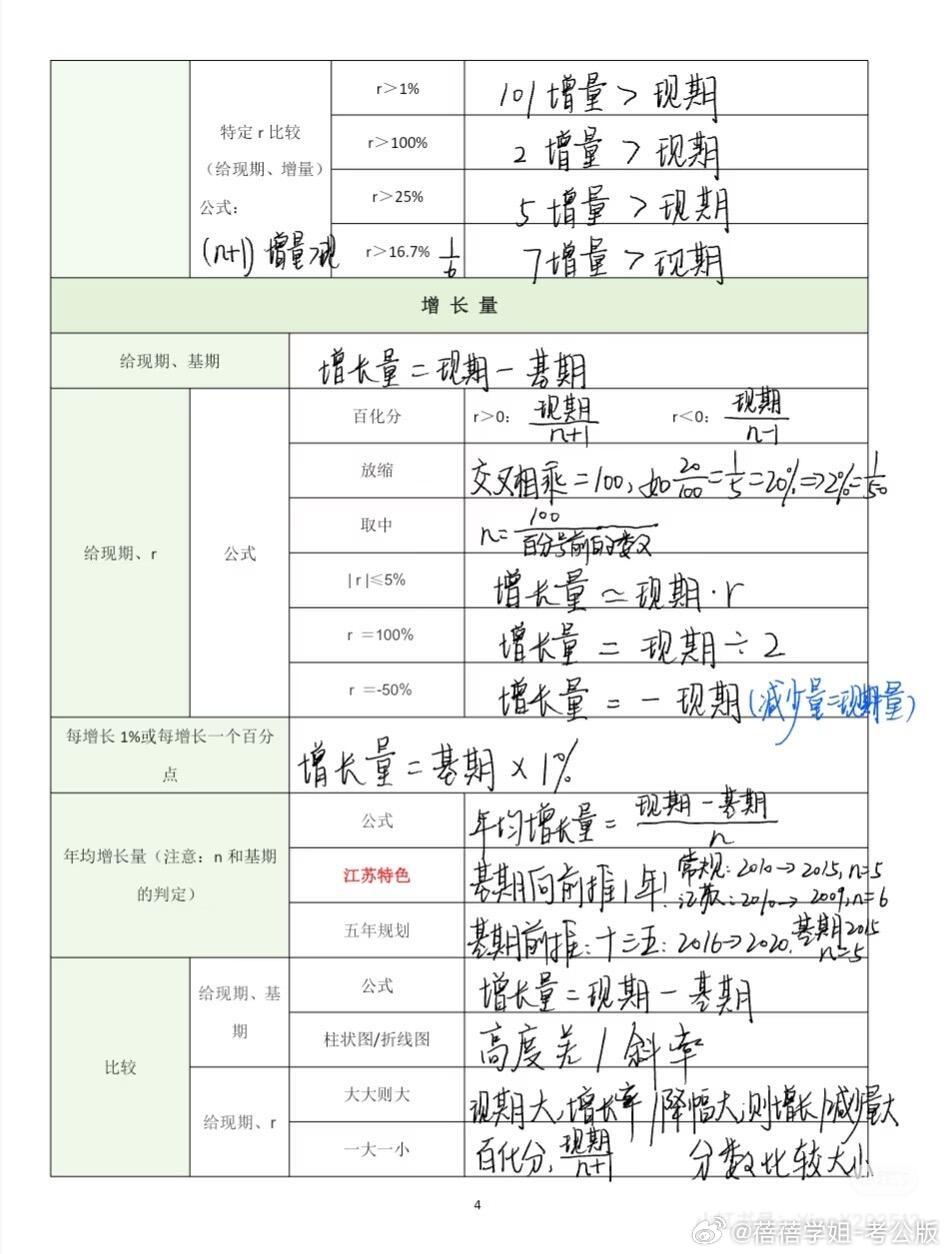 特定 r 比较
（给现期、增量）
公式：
(n+1) 增量>现
r＞1%
101 增量 > 现期
r＞100%
2 增量 > 现期
r＞25%
5 增量 > 现期
r＞16.7% 1/6
7 增量 > 现期
增 长 量
给现期、基期
增长量 = 现期 - 基期
给现期、r
公式
百化分
r＞0： 现期/n+1 r＜0： 现期/n-1
放缩
交叉相乘=100, 如 20/100 = 1/5 = 20% ⇒ 2% = 1/50
取中
n= 100/百分号前的数
| r |≤5%
增长量 ≃ 现期 · r
r ＝100%
增长量 = 现期 ÷ 2
r ＝-50%
增长量 = - 现期 (减少量=现期量)
每增长 1%或每增长一个百分
点
增长量 = 基期 × 1%
年均增长量（注意：n 和基期
的判定）
公式
年均增长量 = 现期 - 基期/n
江苏特色
基期向前推1年! 常规: 2010→2015, n=5
江苏: 2010→2009, n=6
五年规划
基期前推: 十三五: 2016→2020. 基期2015
n=5
比较
给现期、基
期
公式
增长量 = 现期 - 基期
柱状图/折线图
高度差 / 斜率
给现期、r
大大则大
现期大, 增长率/降幅大, 则增长/减少量大
一大一小
百化分, 现期/n+1 分数比较大小
4
@蓓蓓学姐-考公版